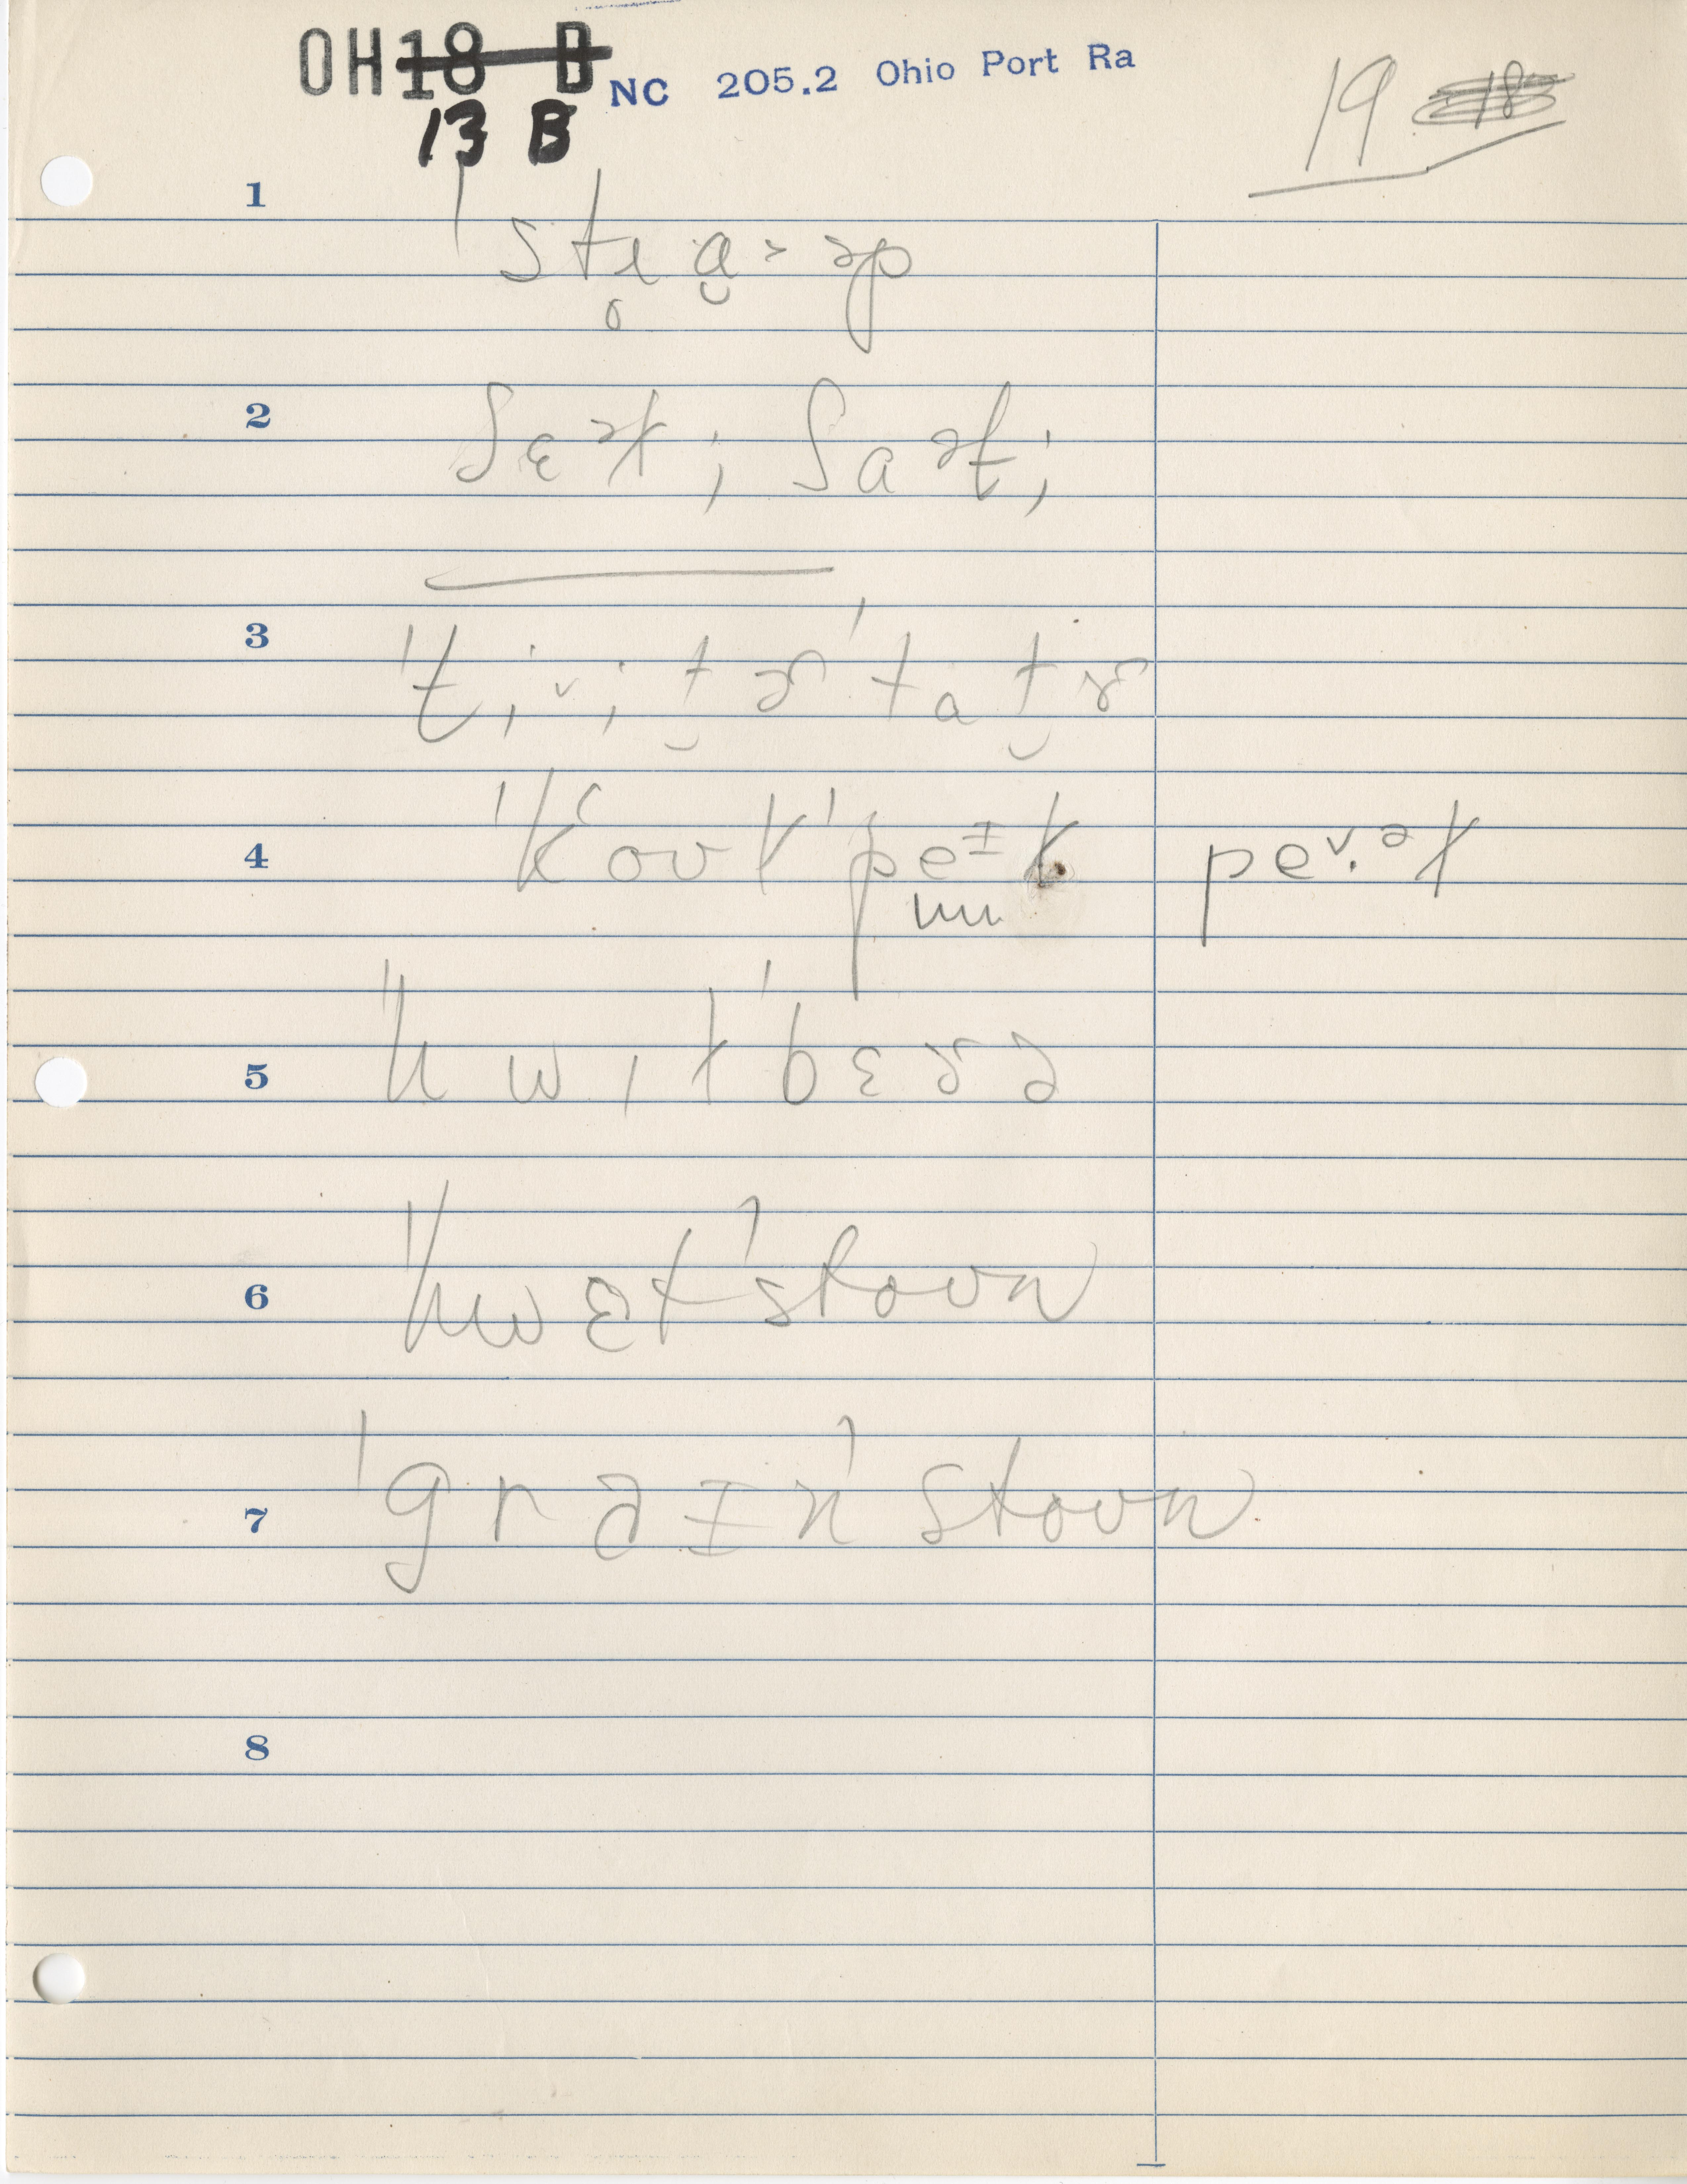 OH 18 B NC 205.2 Ohio Port Ra 19 18
13 B
1 ˈstɹ̥a̮˃əp
2 ʃɛət ; ʃaət ;
3 ˈti˅it̮ɚˈtat̮ɚ
4 ˈkʻoʊtˈpeɪk pe˅·ət
5 ˈhwɪtbɛɚə
6 ˈhwɛtˈstoʊn
7 ˈgraɪnˈstoʊn
8